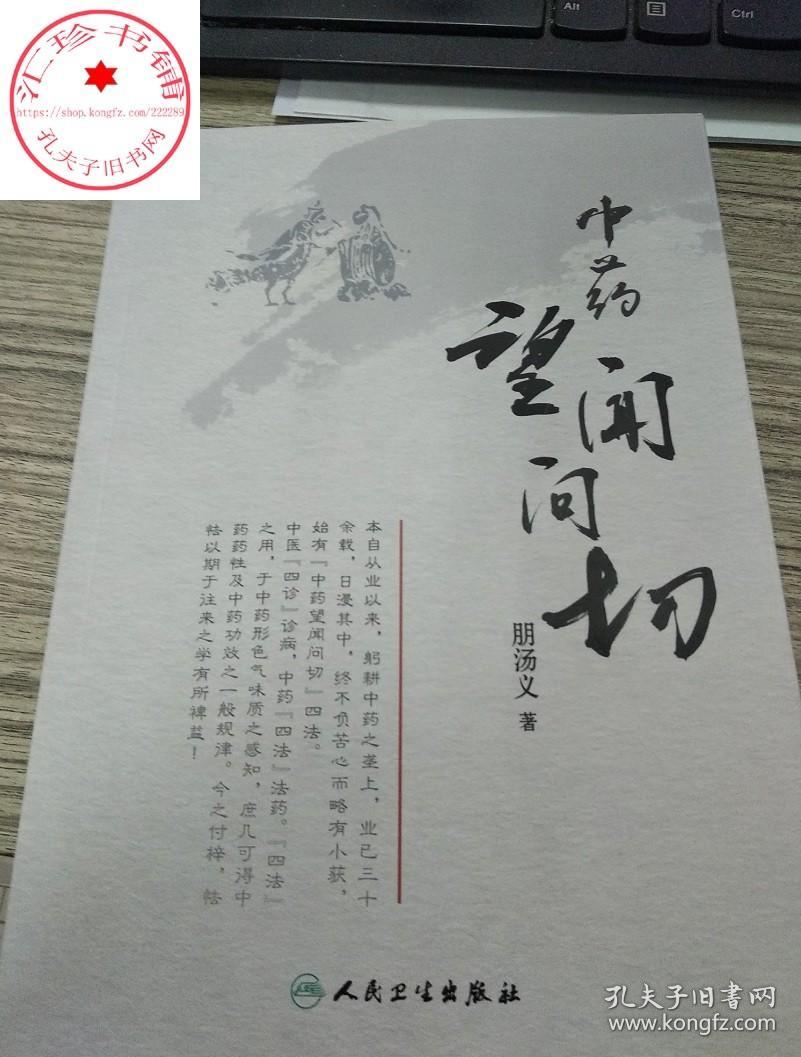 汇珍书铺
https://shop.kongfz.com/222289
孔夫子旧书网
Alt
Ctrl
中药
望闻问切
朋汤义 著
本自从业以来，躬耕中药之垄上，业已三十
余载，日浸其中，终不负苦心而略有小获，
始有『中药望闻问切』四法。
中医『四诊』诊病，中药『四法』法药。『四法』
之用，于中药形色气味质之感知，庶几可得中
药药性及中药功效之一般规律。今之付梓，怙
怙以期于往来之学有所裨益！
人民卫生出版社
孔夫子旧书网
www.kongfz.com